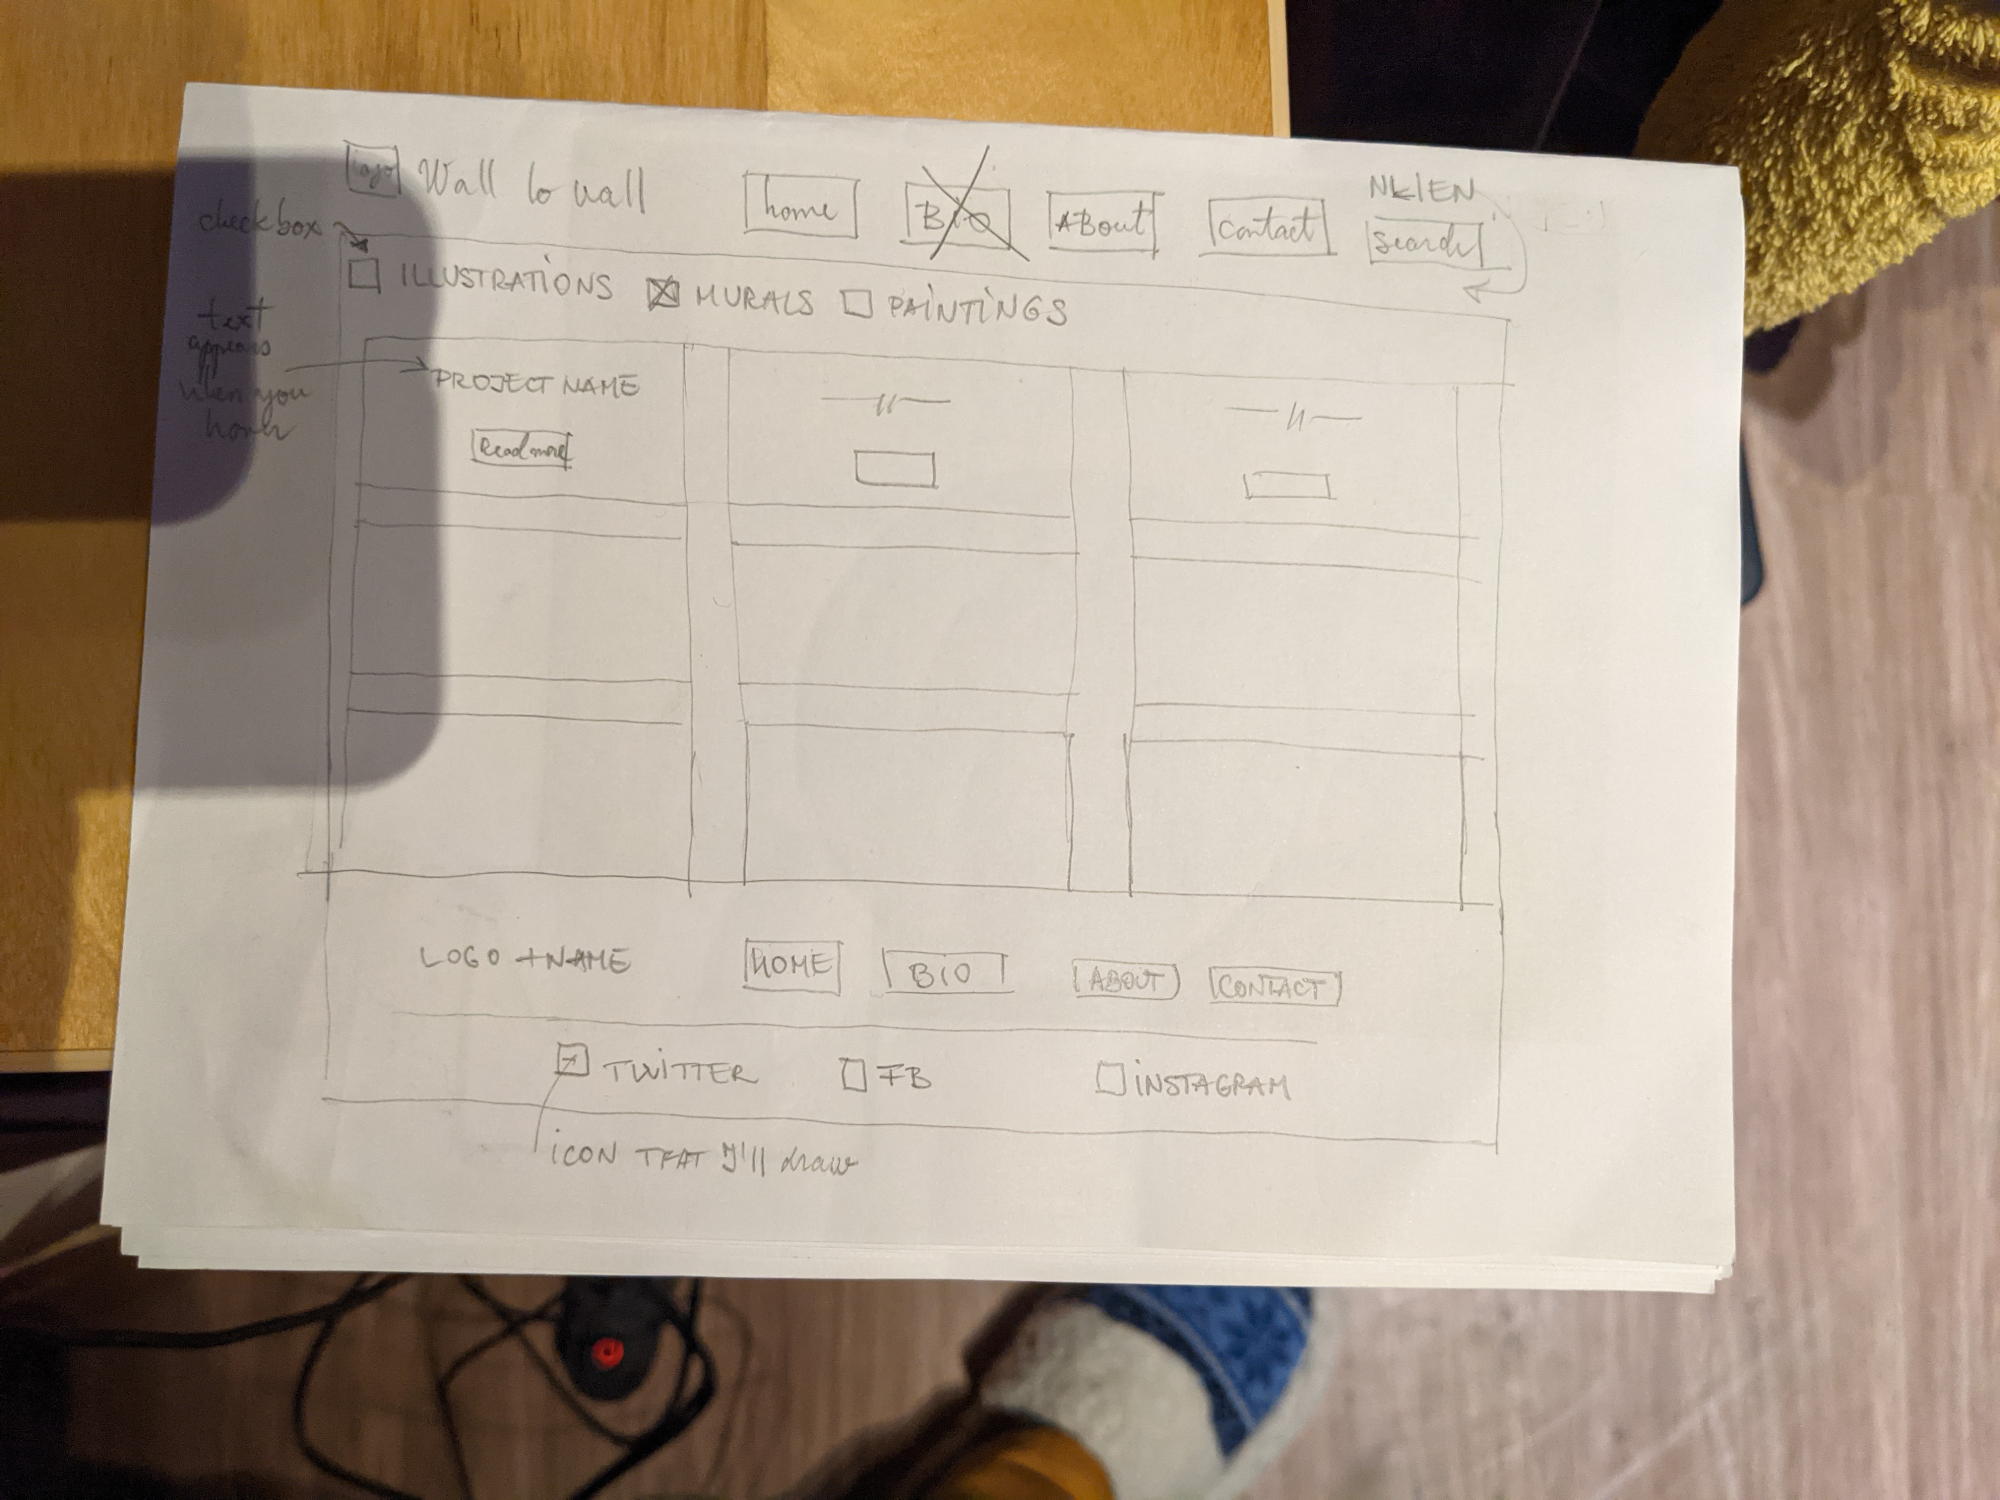 logo Wall to wall
home BiO ABout Contact
NL/EN
Search
checkbox
ILLUSTRATiONS MURALS PAiNTiNGS
text
appears
when you
hover
PROJECT NAME
Read more
LOGO + NAME HOME BIO ABOUT CONTACT
TWiTTER FB iNSTAGRAM
iCON THAT I'll draw